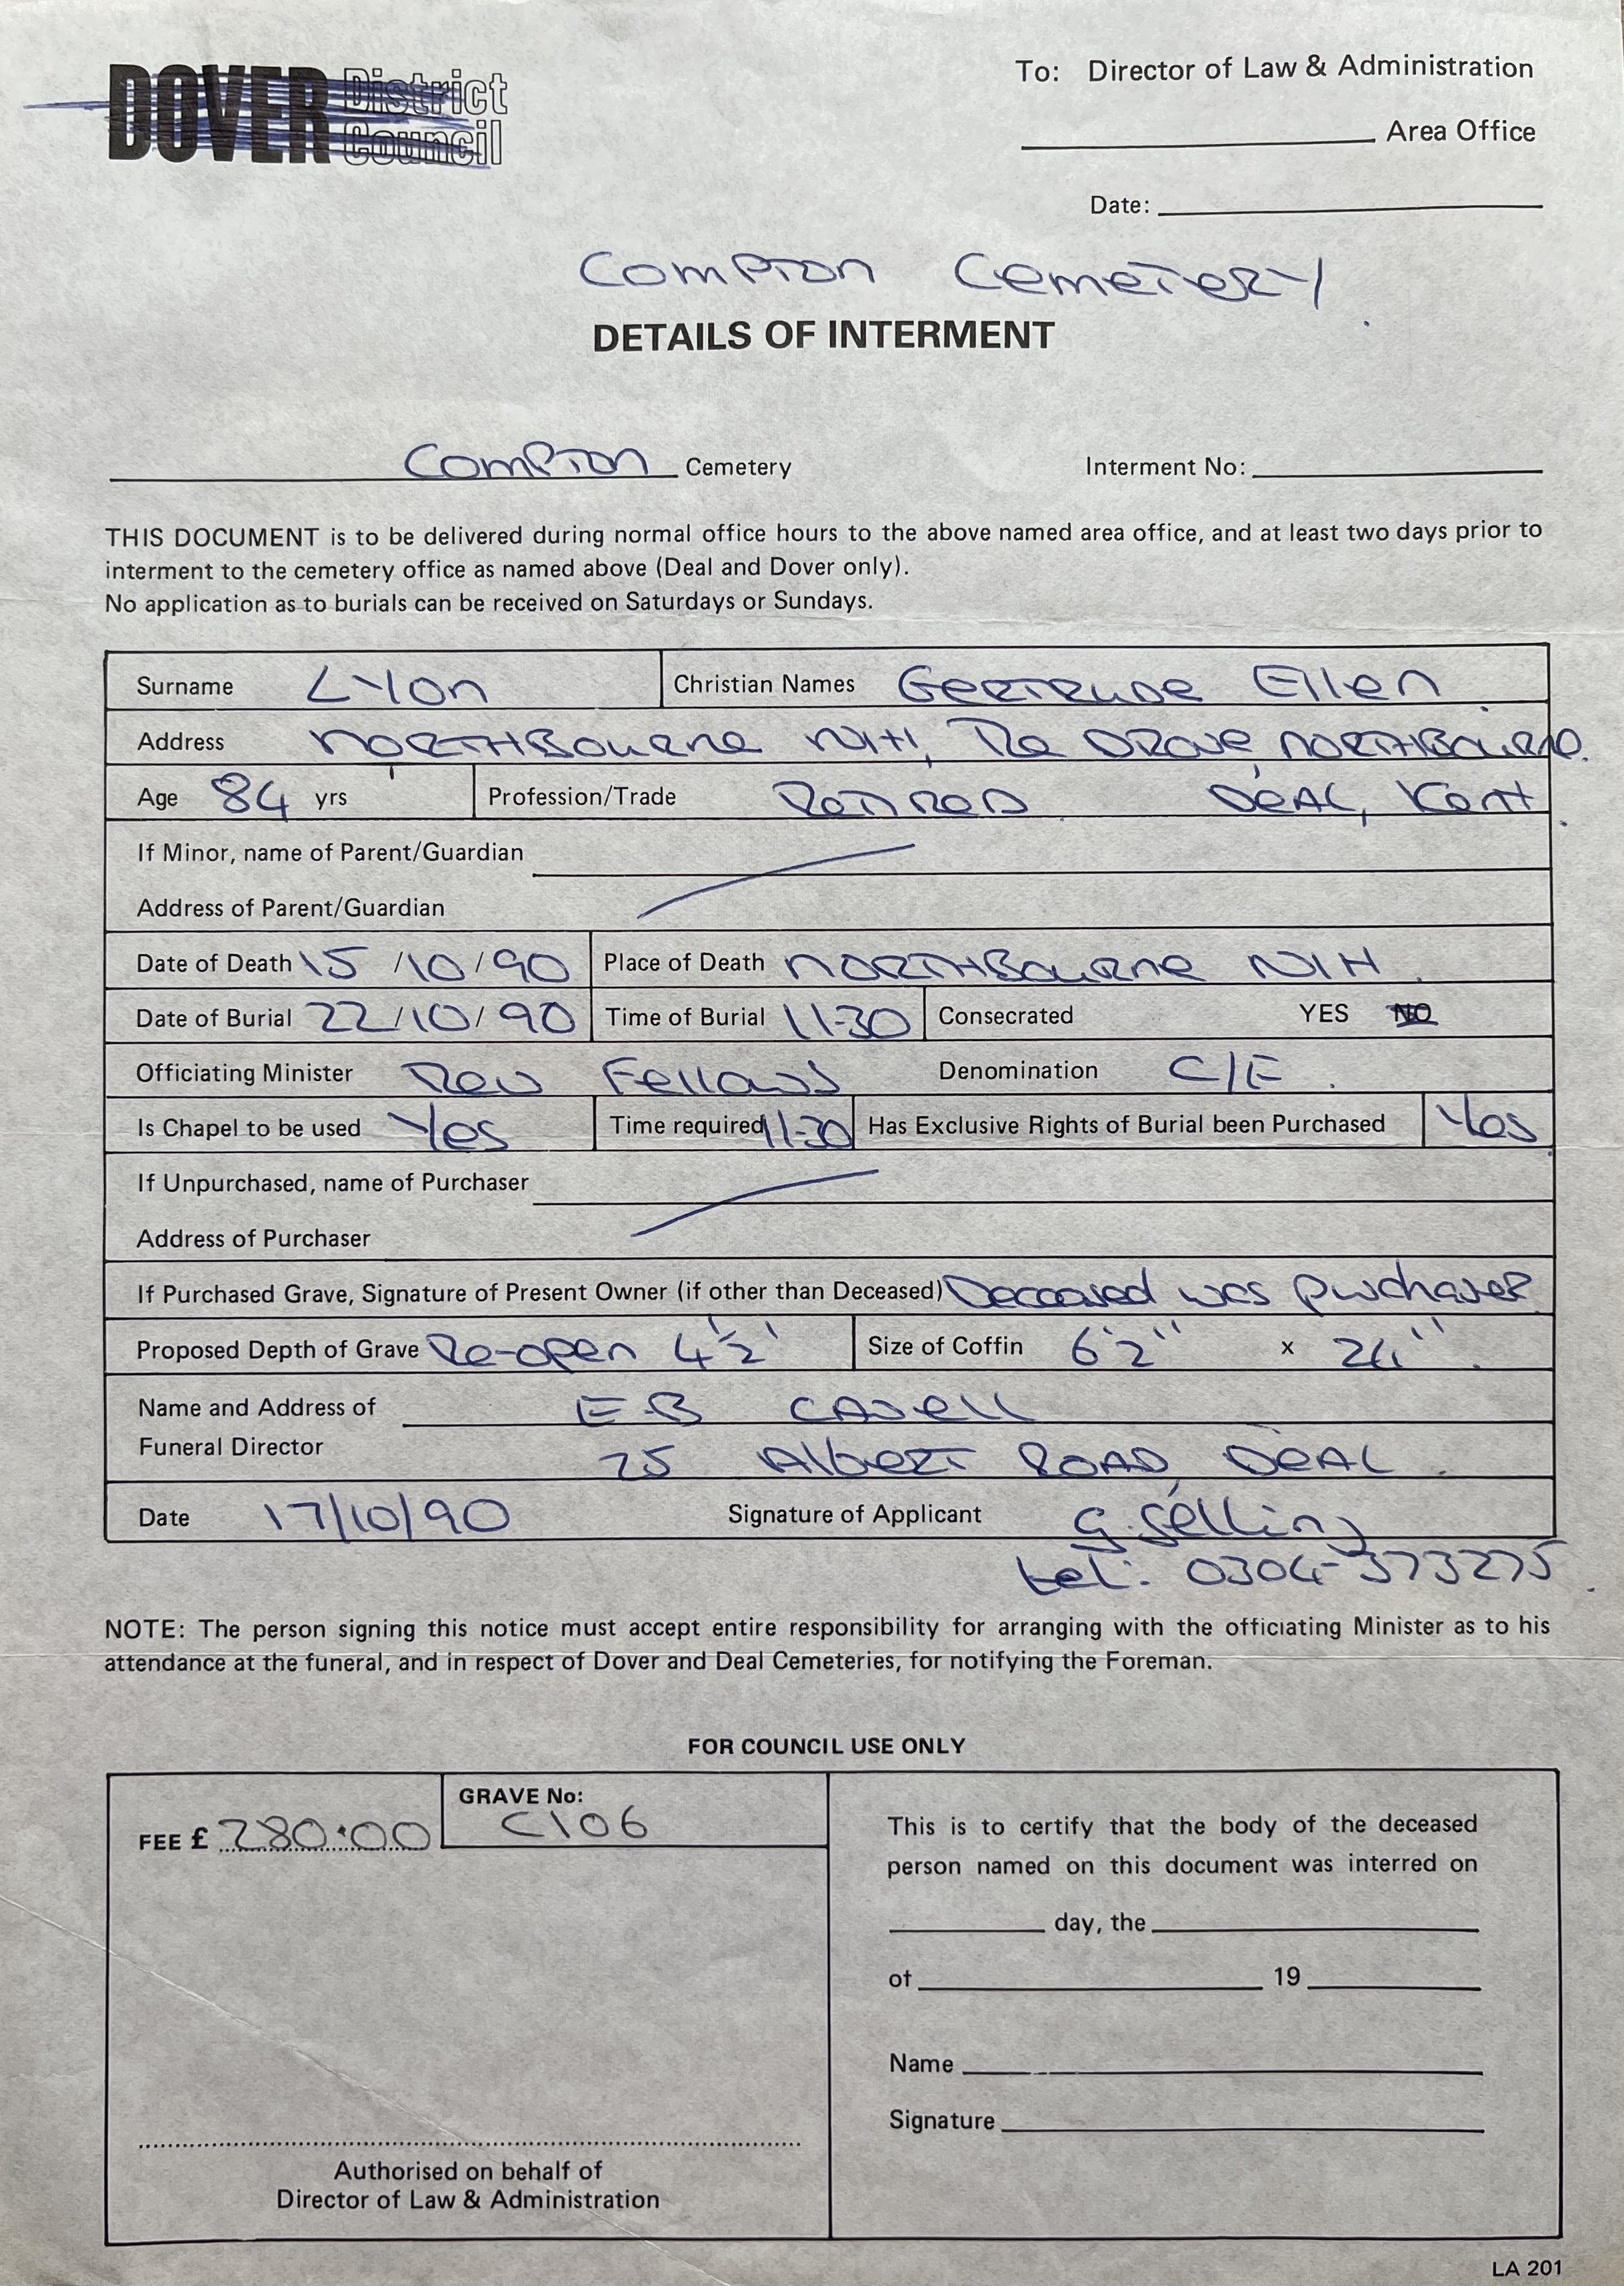 DOVER District Council
To: Director of Law & Administration
Area Office
Date:
Compton Cemetery
DETAILS OF INTERMENT
Compton Cemetery Interment No:
THIS DOCUMENT is to be delivered during normal office hours to the above named area office, and at least two days prior to
interment to the cemetery office as named above (Deal and Dover only).
No application as to burials can be received on Saturdays or Sundays.
Surname Lyon Christian Names Gertrude Ellen
Address Northbourne N/H, The Drove, Northbourne.
Age 84 yrs Profession/Trade Retired Deal, Kent
If Minor, name of Parent/Guardian
Address of Parent/Guardian
Date of Death 15/10/90 Place of Death Northbourne N/H.
Date of Burial 22/10/90 Time of Burial 11-30 Consecrated YES NO
Officiating Minister Rev Fellows Denomination C/E.
Is Chapel to be used Yes Time required 11-30 Has Exclusive Rights of Burial been Purchased Yes
If Unpurchased, name of Purchaser
Address of Purchaser
If Purchased Grave, Signature of Present Owner (if other than Deceased) Deceased was purchaser
Proposed Depth of Grave Re-open 4½' Size of Coffin 6'2" x 24".
Name and Address of E-B Cavell
Funeral Director 25 Albert Road, Deal.
Date 17/10/90 Signature of Applicant G. Selling
tel: 0304-373275.
NOTE: The person signing this notice must accept entire responsibility for arranging with the officiating Minister as to his
attendance at the funeral, and in respect of Dover and Deal Cemeteries, for notifying the Foreman.
FOR COUNCIL USE ONLY
FEE £ 280:00 GRAVE No:
C106
This is to certify that the body of the deceased
person named on this document was interred on
day, the
of 19
Name
Signature
Authorised on behalf of
Director of Law & Administration
LA 201